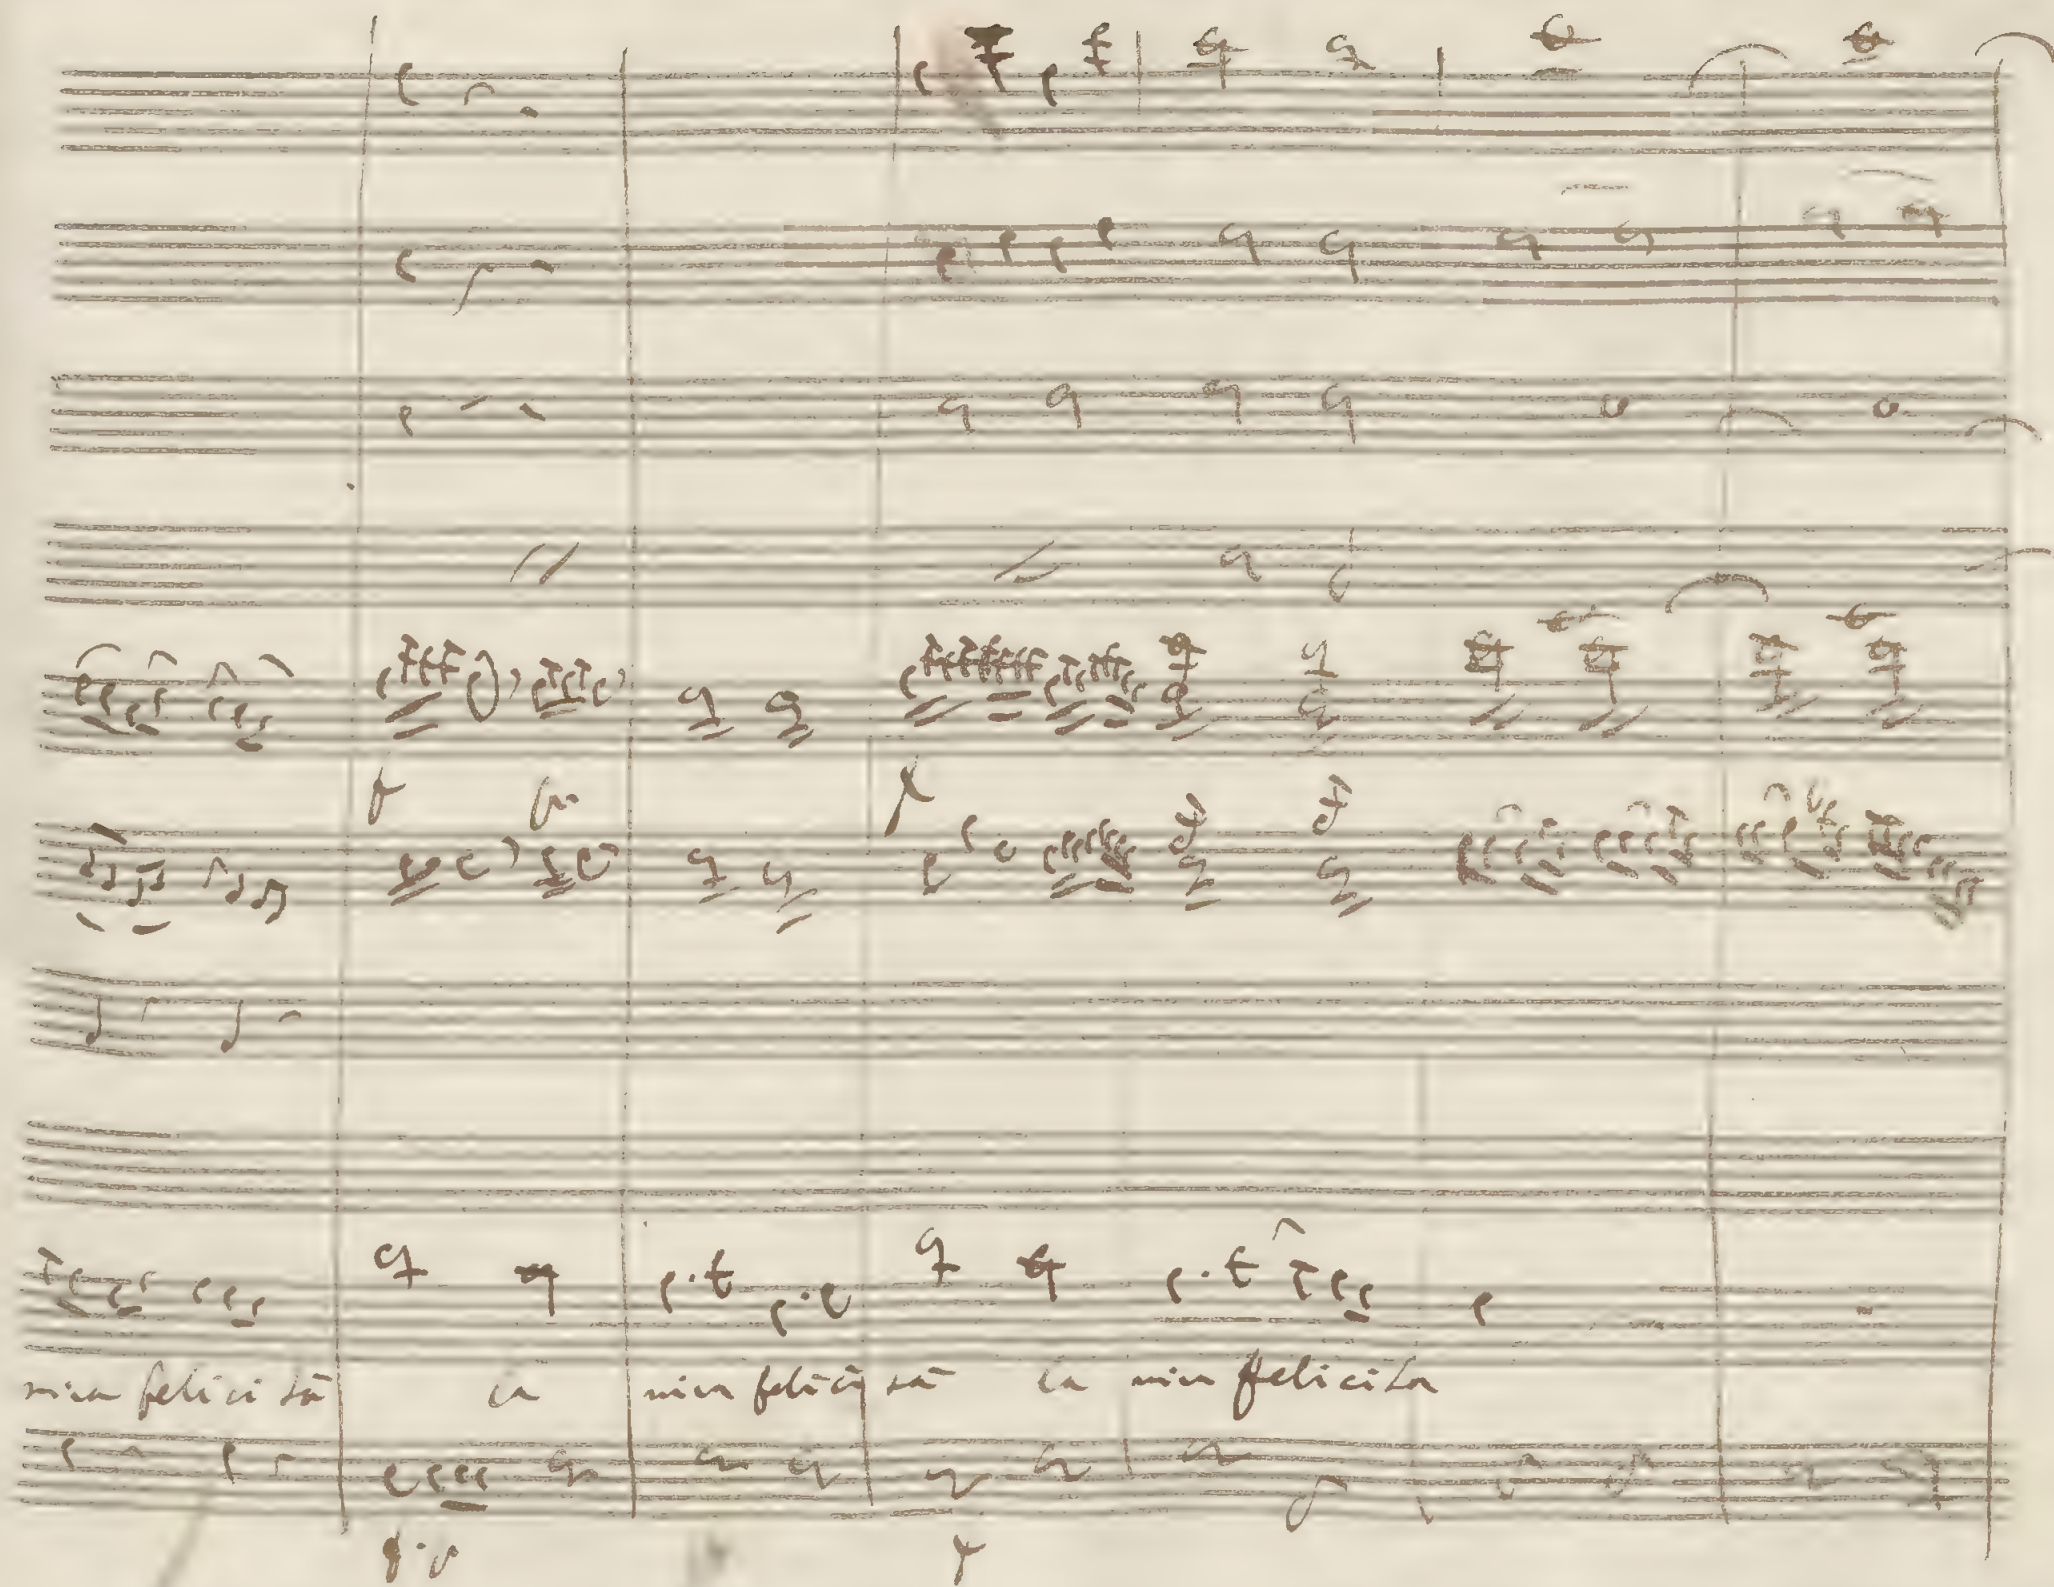 mia felici tà la mia felici tà la mia felicita